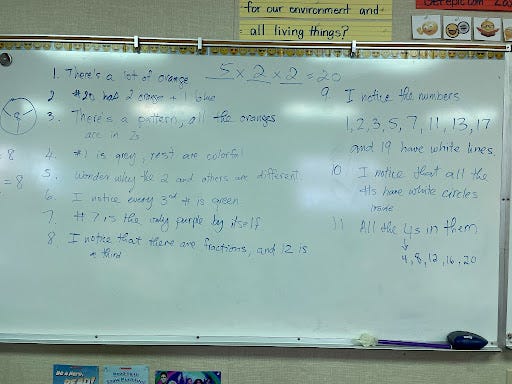 for our environment and
all living things?
1. There's a lot of orange
5 x 2 x 2 = 20
2 #20 has 2 orange + 1 blue
3. There's a pattern, all the oranges
are in 2s
8
= 8
= 8
4. #1 is grey, rest are colorful
5. Wonder why the 2 and others are different
6. I notice every 3rd # is green
7. #7 is the only purple by itself
8. I notice that there are fractions, and 12 is
a third
9. I notice the numbers
1, 2, 3, 5, 7, 11, 13, 17
and 19 have white lines.
10 I notice that all the
#s have white circles
inside
11 All the 4s in them
4, 8, 12, 16, 20
Be a Hero.